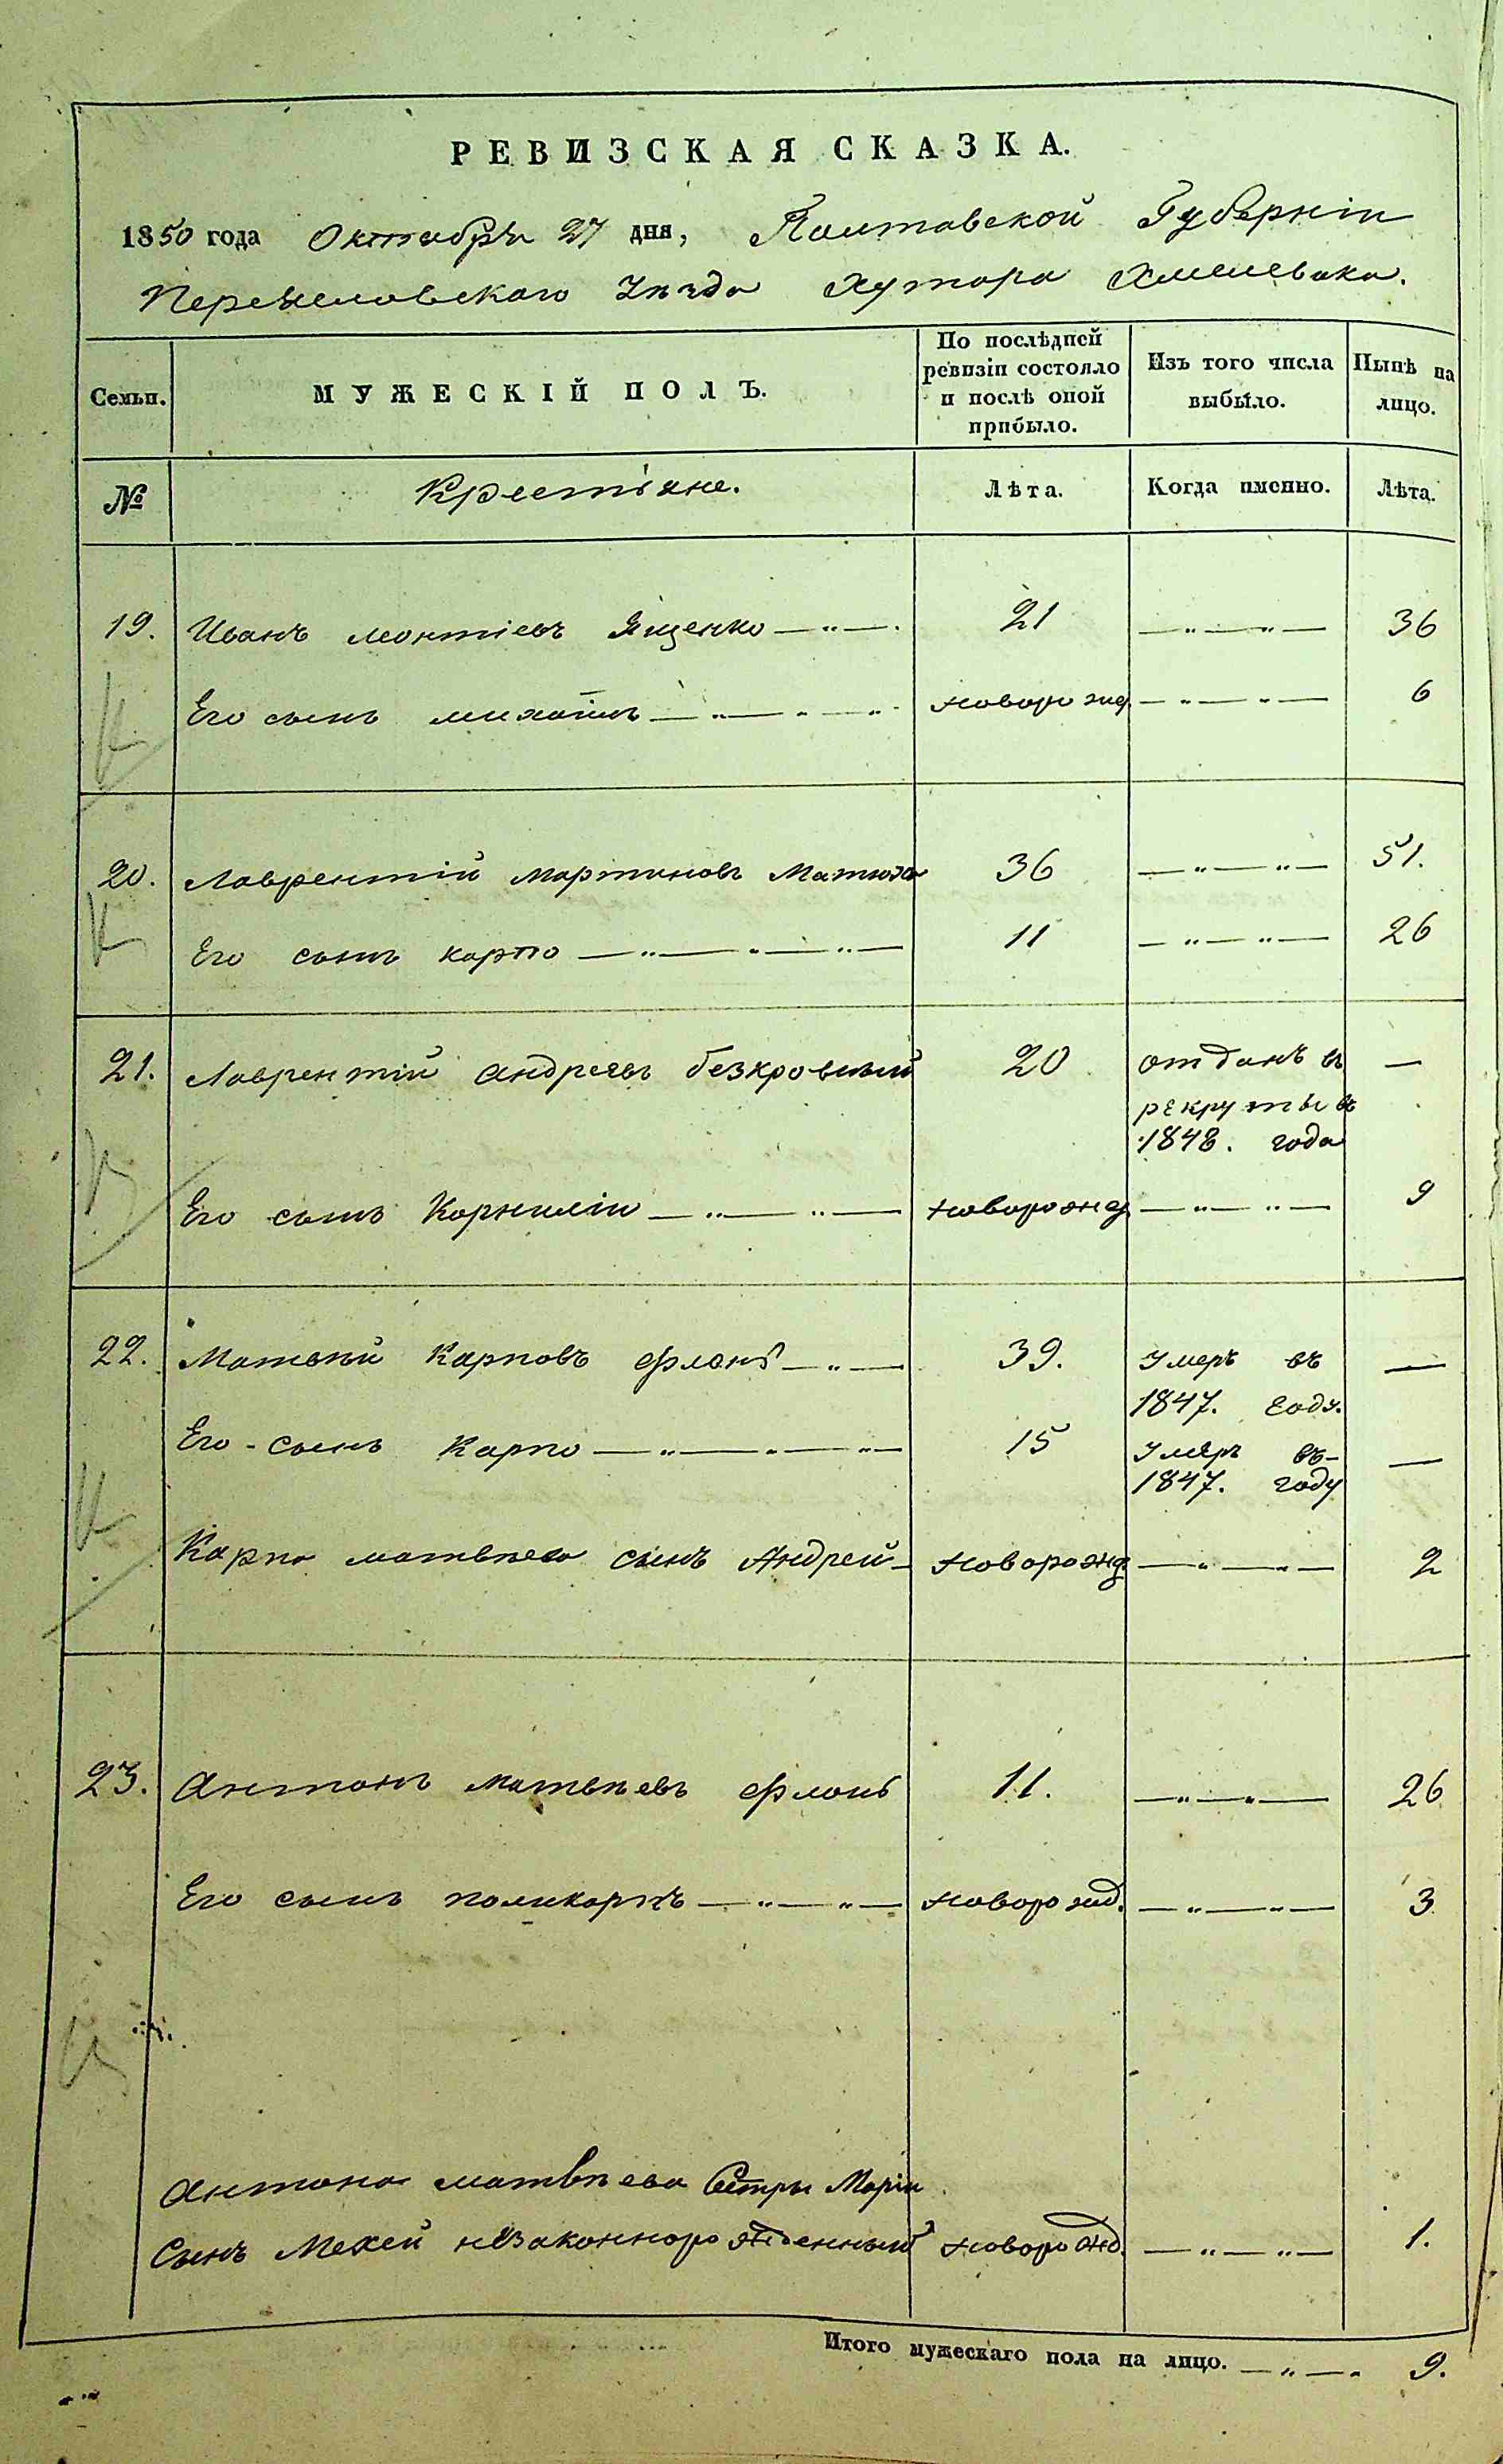 РЕВИЗСКАЯ СКАЗКА.
1850 года Октабря 27 дня, Полтавской Губерніи
Уѣзда Хутора Хмелевака.
Семьи. МУЖЕСКІЙ ПОЛЪ. По послѣдней ревизіи состояло и послѣ оной прибыло. Изъ того числа выбыло. Нынѣ на лицо.
№ Крестіяне. Лѣта. Когда именно. Лѣта.
19. Иванъ леонтіевъ Ященко —"—. 21 —"—"— 36
Его сынъ михаилъ —"—"—"— новорожд —"—"— 6
20. Лаврентій мартиновъ Матюха 36 —"—"— 51.
Его сынъ карпо —"—"—"— 11 —"—"— 26
21. Лаврентій андреевъ безкровный 20 отданъ въ —
рекруты въ
1848. года
Его сынъ Корнилій —"—"— новорожд —"—"— 9
22. Матвѣй Карповъ —"— 39. Умеръ въ —
1847. году.
Его сынъ Карпо —"—"—"— 15 Умеръ въ —
1847. году
Карпа матвѣева сынъ Андрей — новорожд —"—"— 2
23. Антонъ матвѣевъ 11. —"—"— 26
Его сынъ поликарпъ —"—"— новорожд. —"—"— 3
Антона матвѣева Сестры Маріи
Сынъ незаконнорожденный новорожд. —"—"— 1.
Итого мужескаго пола на лицо. —"—" 9.